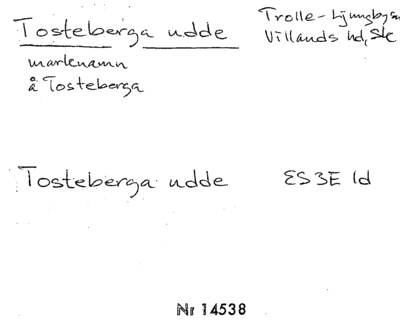 Tosteberga udde
Trolle-Ljungby sn
Villands hd, Sk
marknamn
å Tosteberga
Tosteberga udde ES3E 1d
Nr 14538